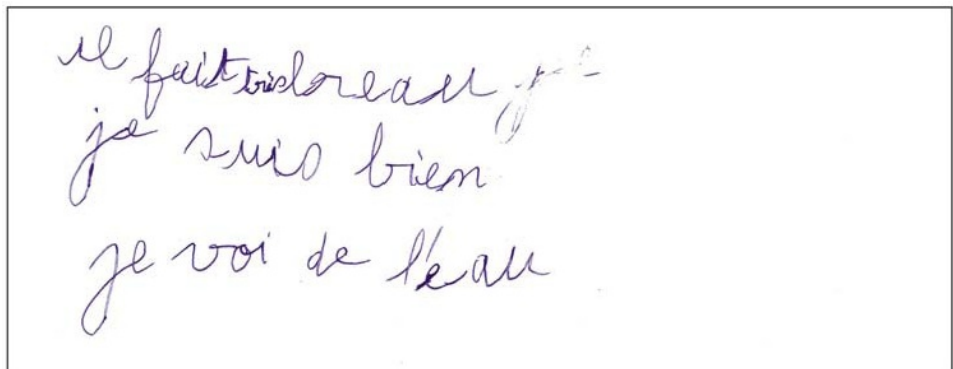 il fait tris breau je
je suis bien
je voi de l'eau